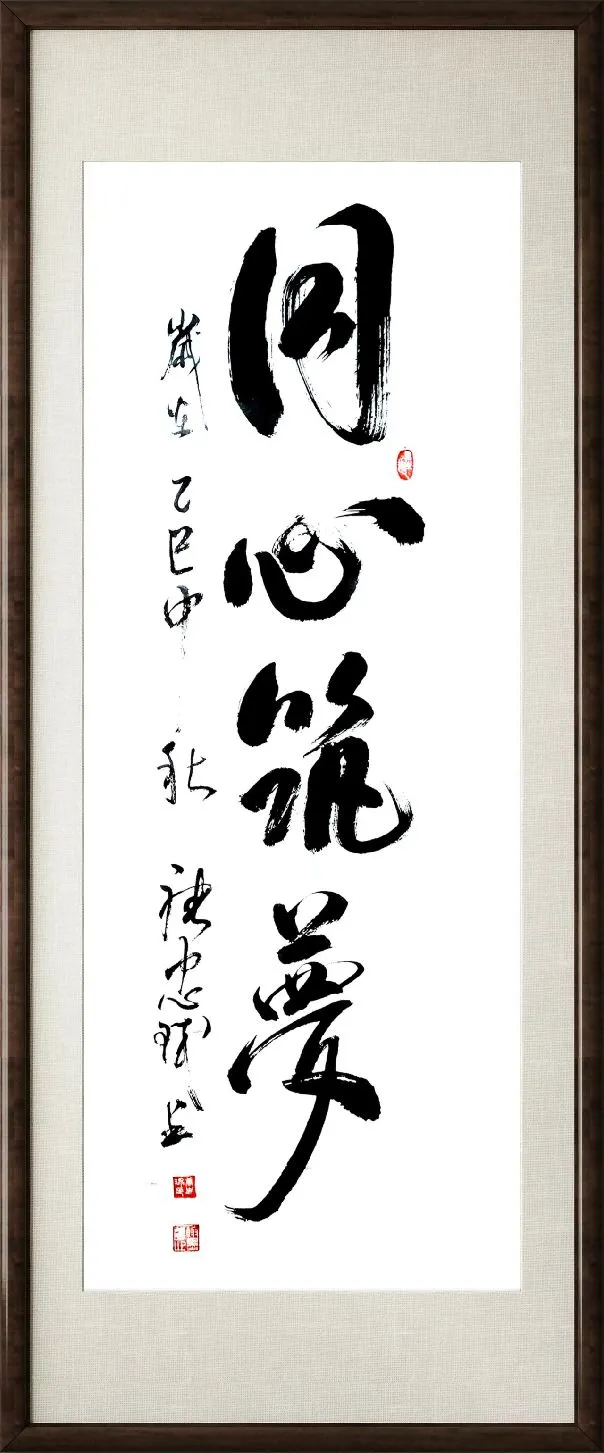 同心筑夢
歲在乙巳中秋 忠 書